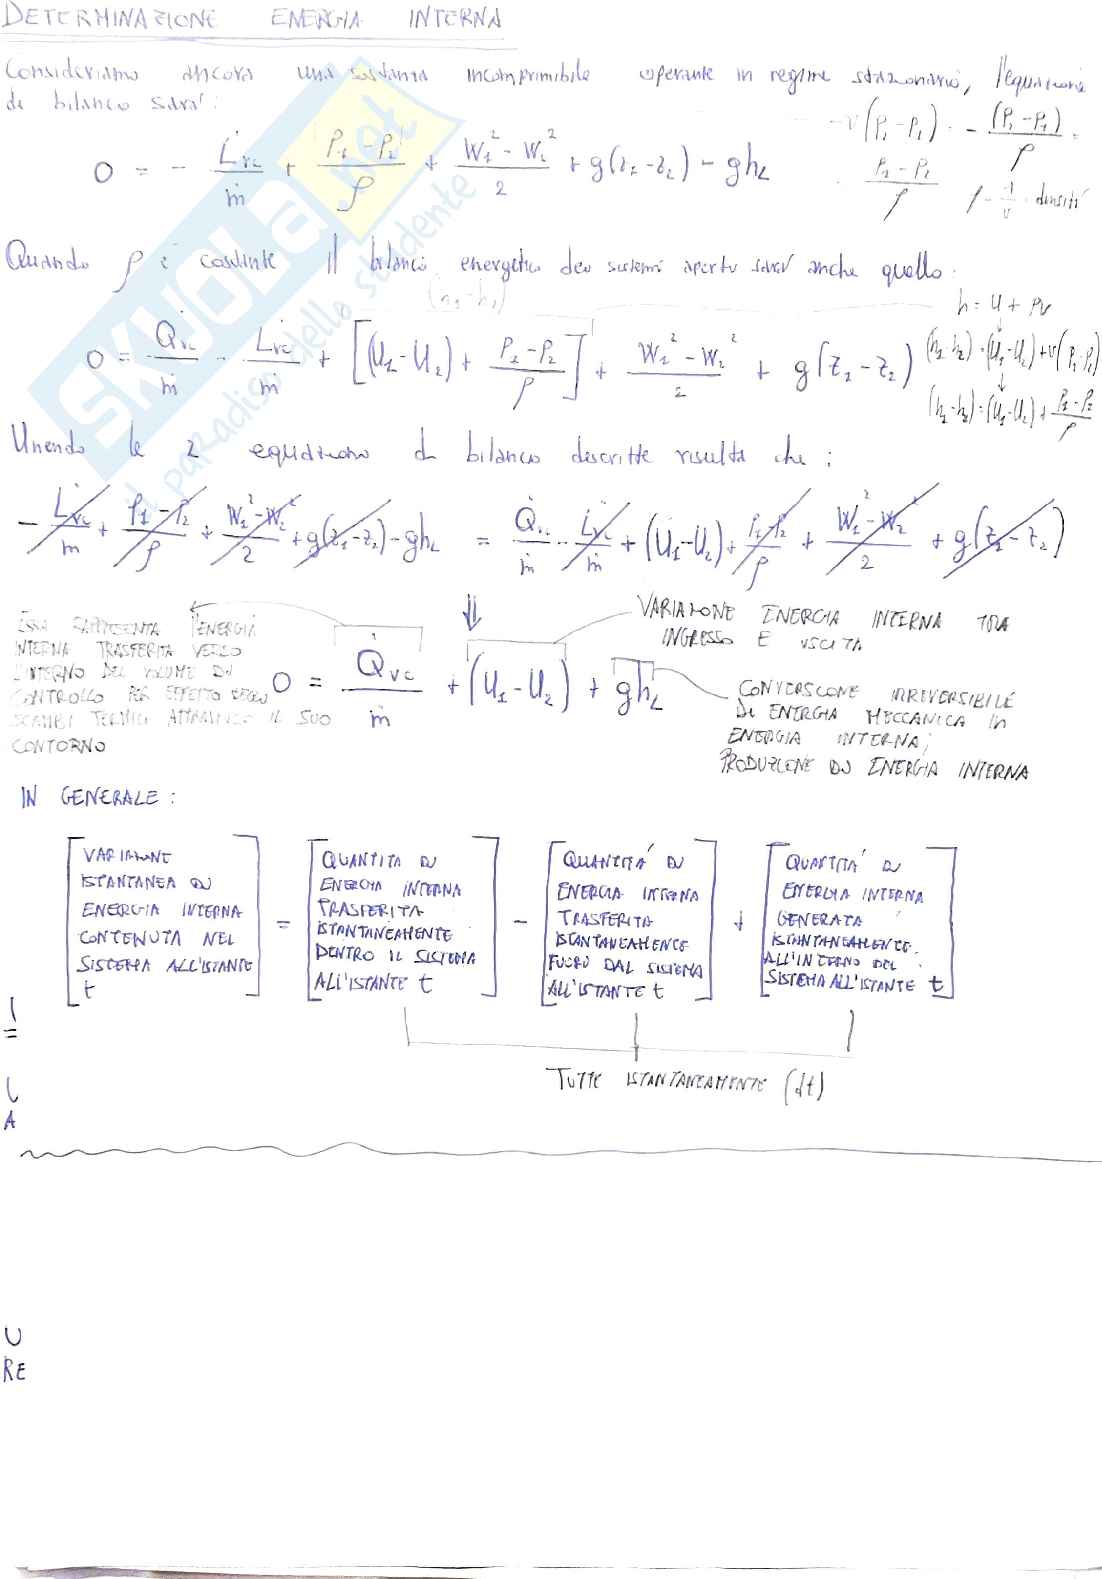 DETERMINAZIONE ENERGIA INTERNA
Consideriamo ancora una sostanza incomprimibile operante in regime stazionario, l'equazione
di bilancio sarà:
-v(P₂-P₁) = -(P₂-P₁)/ρ =
0 = - L̇vc/ṁ + (P₁-P₂)/ρ + (W₁²-W₂²)/2 + g(z₁-z₂) - ghL
(P₁-P₂)/ρ ρ = 1/v = densità
Quando ρ è costante il bilancio energetico dei sistemi aperti sarà anche quello:
(h₁-h₂)
h = U + pv
0 = Q̇vc/ṁ - L̇vc/ṁ + [(U₁-U₂) + (P₁-P₂)/ρ] + (W₁²-W₂²)/2 + g(z₁-z₂)
(h₁-h₂) = (U₁-U₂) + v(P₁-P₂)
(h₁-h₂) = (U₁-U₂) + (P₁-P₂)/ρ
Unendo le 2 equazioni di bilancio descritte risulta che:
- L̇vc/ṁ + (P₁-P₂)/ρ + (W₁²-W₂²)/2 + g(z₁-z₂) - ghL = Q̇vc/ṁ - L̇vc/ṁ + (U₁-U₂) + (P₁-P₂)/ρ + (W₁²-W₂²)/2 + g(z₁-z₂)
⇓
ESSA RAPPRESENTA L'ENERGIA
INTERNA TRASFERITA VERSO
L'INTERNO DEL VOLUME DI
CONTROLLO PER EFFETTO DEGLI
SCAMBI TERMICI ATTRAVERSO IL SUO
CONTORNO
VARIAZIONE ENERGIA INTERNA TRA
INGRESSO E USCITA
0 = Q̇vc/ṁ + (U₁-U₂) + ghL
CONVERSIONE IRREVERSIBILE
DI ENERGIA MECCANICA IN
ENERGIA INTERNA;
PRODUZIONE DI ENERGIA INTERNA
IN GENERALE:
[VARIAZIONE
ISTANTANEA DI
ENERGIA INTERNA
CONTENUTA NEL
SISTEMA ALL'ISTANTE
t]
=
[QUANTITÀ DI
ENERGIA INTERNA
TRASFERITA
ISTANTANEAMENTE
DENTRO IL SISTEMA
ALL'ISTANTE t]
-
[QUANTITÀ DI
ENERGIA INTERNA
TRASFERITA
ISTANTANEAMENTE
FUORI DAL SISTEMA
ALL'ISTANTE t]
+
[QUANTITÀ DI
ENERGIA INTERNA
GENERATA
ISTANTANEAMENTE
ALL'INTERNO DEL
SISTEMA ALL'ISTANTE t]
TUTTE ISTANTANEAMENTE (dt)
A
U
RE
SKUOLA.net
il paradiso dello studente